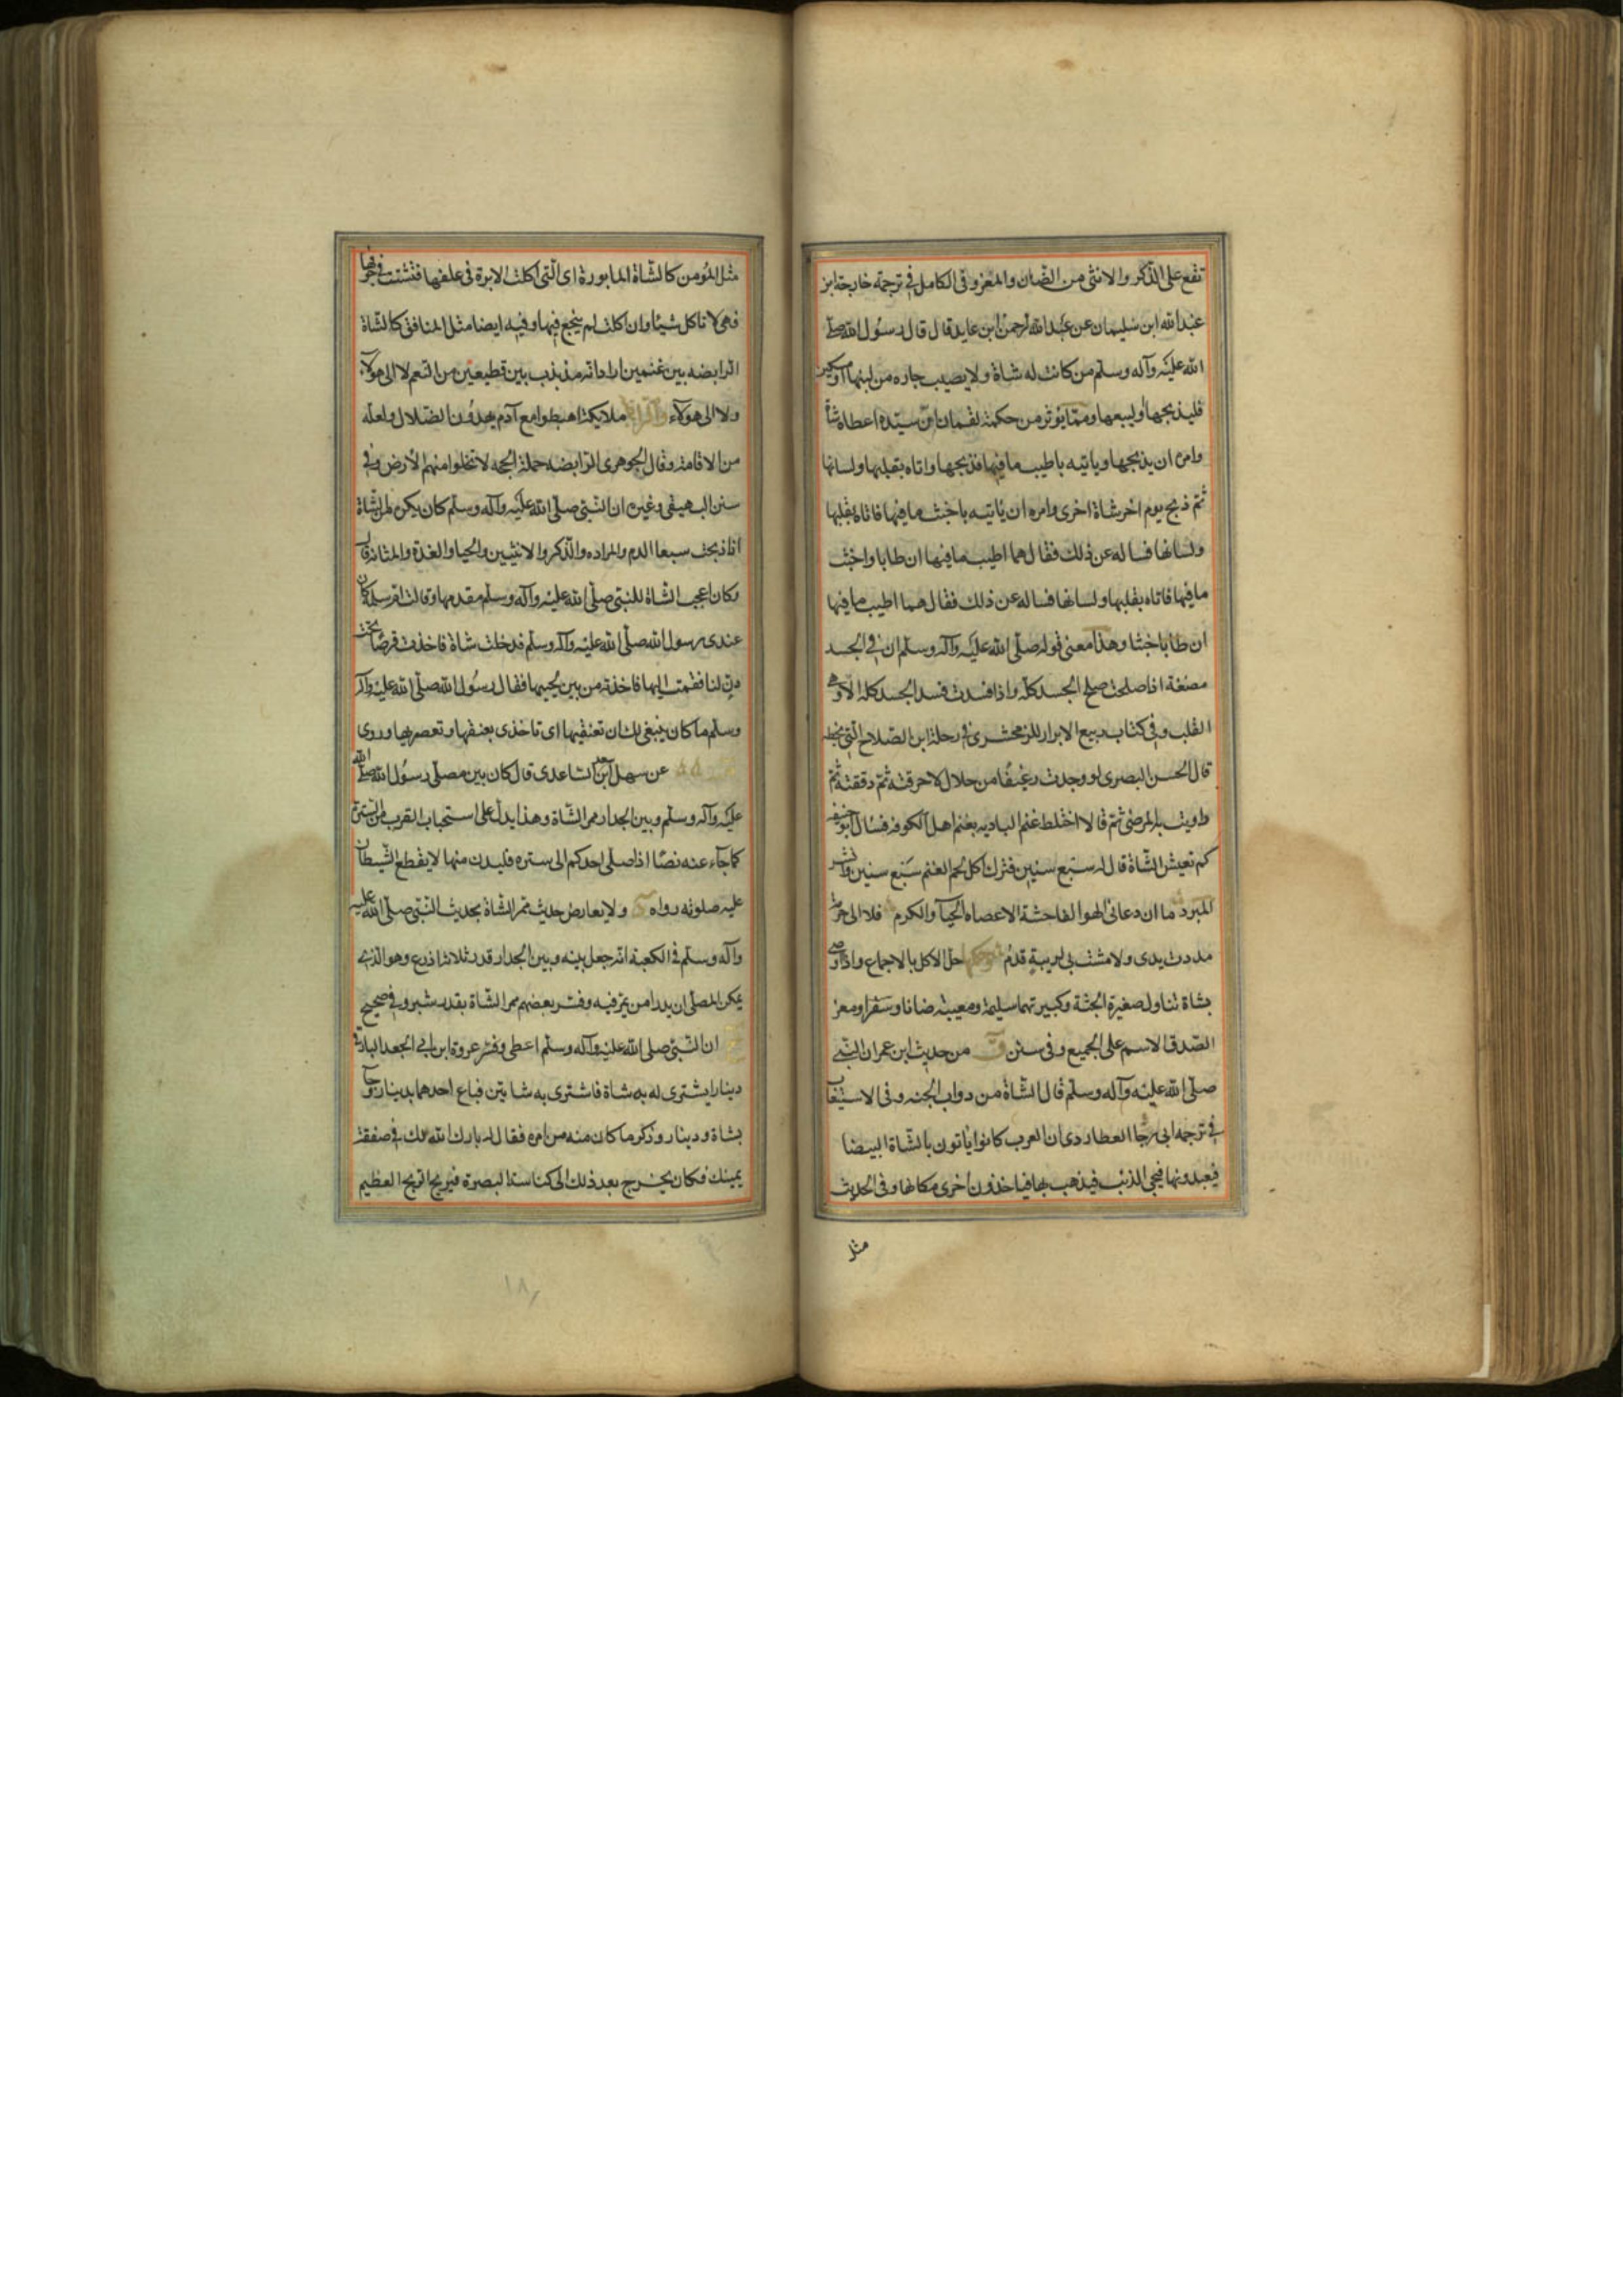 تقع علی الذّکر والانثی من الضّان والمعز وفی الکامل فی ترجمة خارجة ابن
عبدالله ابن سُلیمان عن عبدالرحمن ابن عاید قال قال رسُول الله صلّی
الله علیْه وآله وسلّم من کانت له شاة ولا یصیب جاره من لبنها اومسکین
فلیذبحها او لیبعها وممّا یؤثر من حکمة لقمان انّ سیّده اعطاه شاة
وامره ان یذبحها ویاتیه باطیب ما فیها فذبحها واتاه بقلبها ولسانها
ثمّ ذبح یوم اخر شاة اخری وامره ان یاتیه باخبث ما فیها فاتاه بقلبها
ولسانها فساله عن ذلك فقال هما اطیب ما فیها ان طابا واخبث
ما فیها فاتاه بقلبها ولسانها فساله عن ذلك فقال هما اطیب ما فیها
ان طابا خبثا وهذا معنی قوله صلّی الله علیْه وآله وسلّم ان فی الجسد
مضغة اذا صلحت صلح الجسد کلّه واذا فسدت فسد الجسد کله الا وهی
القلب وفی کتاب ربیع الابرار للزمخشری فی رحلة ابن الصّلاح الّتی بخطه
قال الحسن البصری لو وجدت رغیفًا من حلال لاحرقته ثمّ دققته ثمّ
داویت به المرضی ثمّ قالا اختلط غنم البادیه بغنم اهل الکوفه فسال ابو حنیفه
کم تعیش الشّاة قال له سبع سنین فترك اکل لحم الغنم سَبع سنین وانشد
المبرد ما ان دعانی الهوا الفاحشة الا عصاه الحیآ والکرم فلا الی حرمة
مددت یدی ولا مشت بی لریبةٍ قدمُ وحکمها حلّ الاکل بالاجماع واذا اوصی
بشاة تناول صغیرة الجثة وکبیرتهما سلیمة ومعیبه ضانا وسقرا ومعز
الصّدق الاسم علی الجمیع وفی سنن ق من حدیث ابن عمران النّبی
صلّی الله علیْه وآله وسلّم قال الشّاة من دواب الجنه وفی الاستیعاب
فی ترجمه ابی رجا العطاردی ان العرب کانوا یاتون بالشّاة البیضا
فیعبدونها فیجی الذئب فیذهب بها فیاخذون أخری مکانها وفی الحدیث
مثل
مثل المُؤمن کالشّاة المابورة ای الّتی اکلت الابرة فی علفها فنشبت فی جوفها
فهی لا تاکل شیئا وان اکلت لم ینجع فیها وفیه ایضا مثل المنافق کالشّاة
الرابضه بین غنمین اراد انّه مذبذب بین قطیعین من الغنم لا الی هولآء
ولا الی هولآء ملایکة اهبطوا مع آدم یهدُون الضّلال ولعله
من الاقامة وقال الجوهری الرابضه حملة الحجه لا تخلوا منهم الأرض وفی
سنن البیهقی وغیره ان النّبیّ صلّی الله علیْه وآله وسلّم کان یکره من الشّاة
اذا ذبحت سبعا الدم والمراده والذّکر والانثیین والحیا والغدة والمثانة قال
وکان اعجب الشّاة للنبیّ صلّی الله علیْه وآله وسلّم مقدمها وقالت امّ سلمة کان
عندی رسول الله صلّی الله علیْه وآله وسلّم فدخلت شاة فاخذت قرصًا تحت
دنّ لنا فقمت الیها فاخذته من بین لحییها فقال رسُول الله صلّی الله علیْه وآله
وسلّم ما کان ینبغی لك ان تعنقیها ای تاخذی بعنقها وتعصریها وروی
عن سهل ابن سعد السّاعدی قال کان بین مصلّی رسُول الله صلّی الله
علیْه وآله وسلّم وبین الجدار ممر الشّاة وهذا یدل علی استحباب القرب من السّترة
کما جآء عنه نصّا اذا صلّی احدکم الی ستره فلیدن منها لا یقطع الشّیطان
علیه صلوته رواه ولا یعارض حدیث ممر الشّاة بحدیث النّبیّ صلّی الله علیه
وآله وسلّم فی الکعبة انّه جعل بینه وبین الجدار قدر ثلاثة اذرع وهو الّذی
یمکن المصلّی ان یدرا من یمرّ فیه وفسّر بعضهم ممر الشّاة بقدر شبر وفی صحیح
ان النّبیّ صلی الله علیه وآله وسلّم اعطی وفسّر عروة ابن ابی الجعد البارقی
دینارا یشتری له به شاة فاشتری به شاتین فباع احدهما بدینار وجآ
بشاة ودینار وذکر ما کان منه من امره فقال له بارك الله لك فی صفقة
یمینك فکان یخرج بعد ذلك الی کناسة البصرة فیربح الربح العظیم